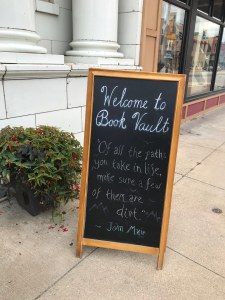 Welcome to
Book Vault
"Of all the paths
you take in life,
make sure a few
of them are
dirt"
- John Muir